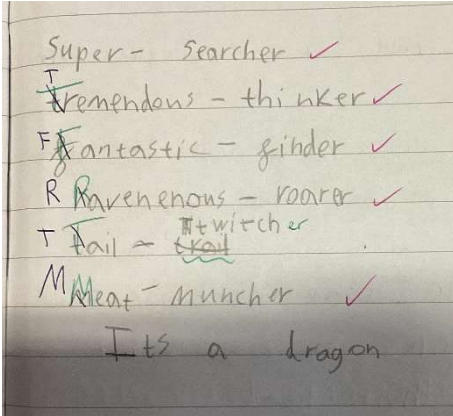 Super - Searcher
Tremendous - thinker
Fantastic - finder
R Ravenenous - roarer
twitcher
T Tail - trail
M Meat - muncher
Its a dragon